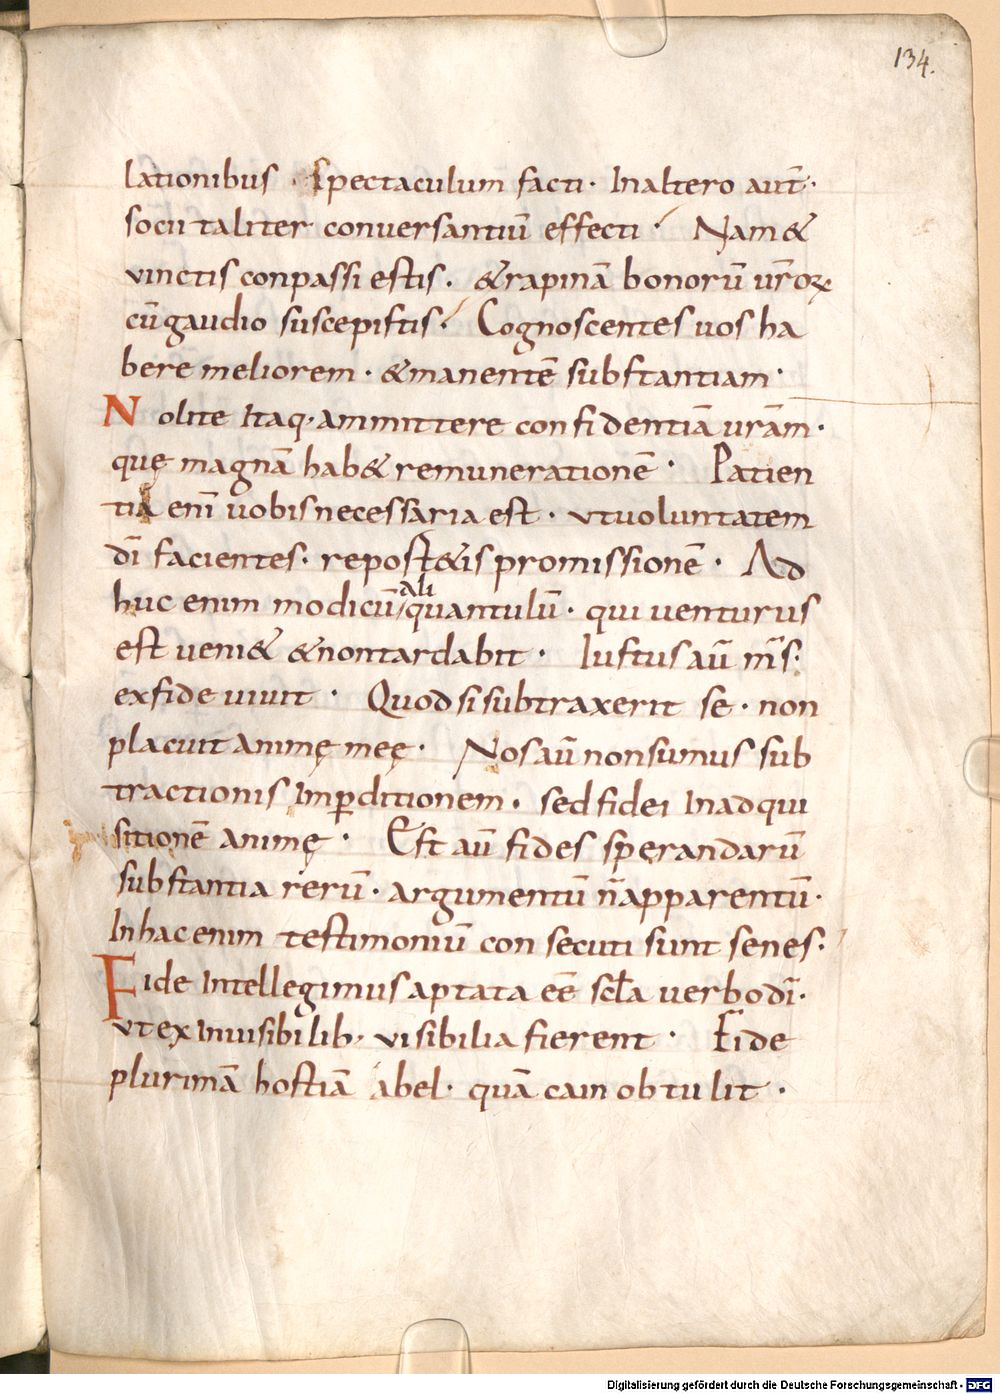 134.
lationibus · Spectaculum facti · Inaltero aut̄ ·
socii taliter conuersantiū effecti · Nam &
vinctis conpassi estis · & rapinā bonorū ur̄oꝝ
cū gaudio suscepistis · Cognoscentes uos ha
bere meliorem · & manentē substantiam ·
Nolite Itaq· ammittere confidentiā ur̄am ·
quę magnā hab& remunerationē · Patien
tia eni̅ uobis necessaria est · vt uoluntatem
dī facientes · report&is promissionē · Ad
huc enim modicū aliquantulū · qui uenturus
est ueni& & non tardabit · Iustus aū m̄s ·
ex fide uiuit · Quod si subtraxerit se · non
placuit animę meę · Nos aū non sumus sub
tractionis In ꝑditionem · sed fidei In adqui
sitionē animę · Est aū fides sperandarū
substantia rerū · argumentū n̄ apparentū ·
In hac enim testimoniū consecuti sunt senes ·
Fide Intellegimus aptata eē scl̄a uerbo dī ·
vt ex Inuisibilib· visibilia fierent · Fide
plurimā hostiā abel · quā cain obtulit ·
Digitalisierung gefördert durch die Deutsche Forschungsgemeinschaft - DFG